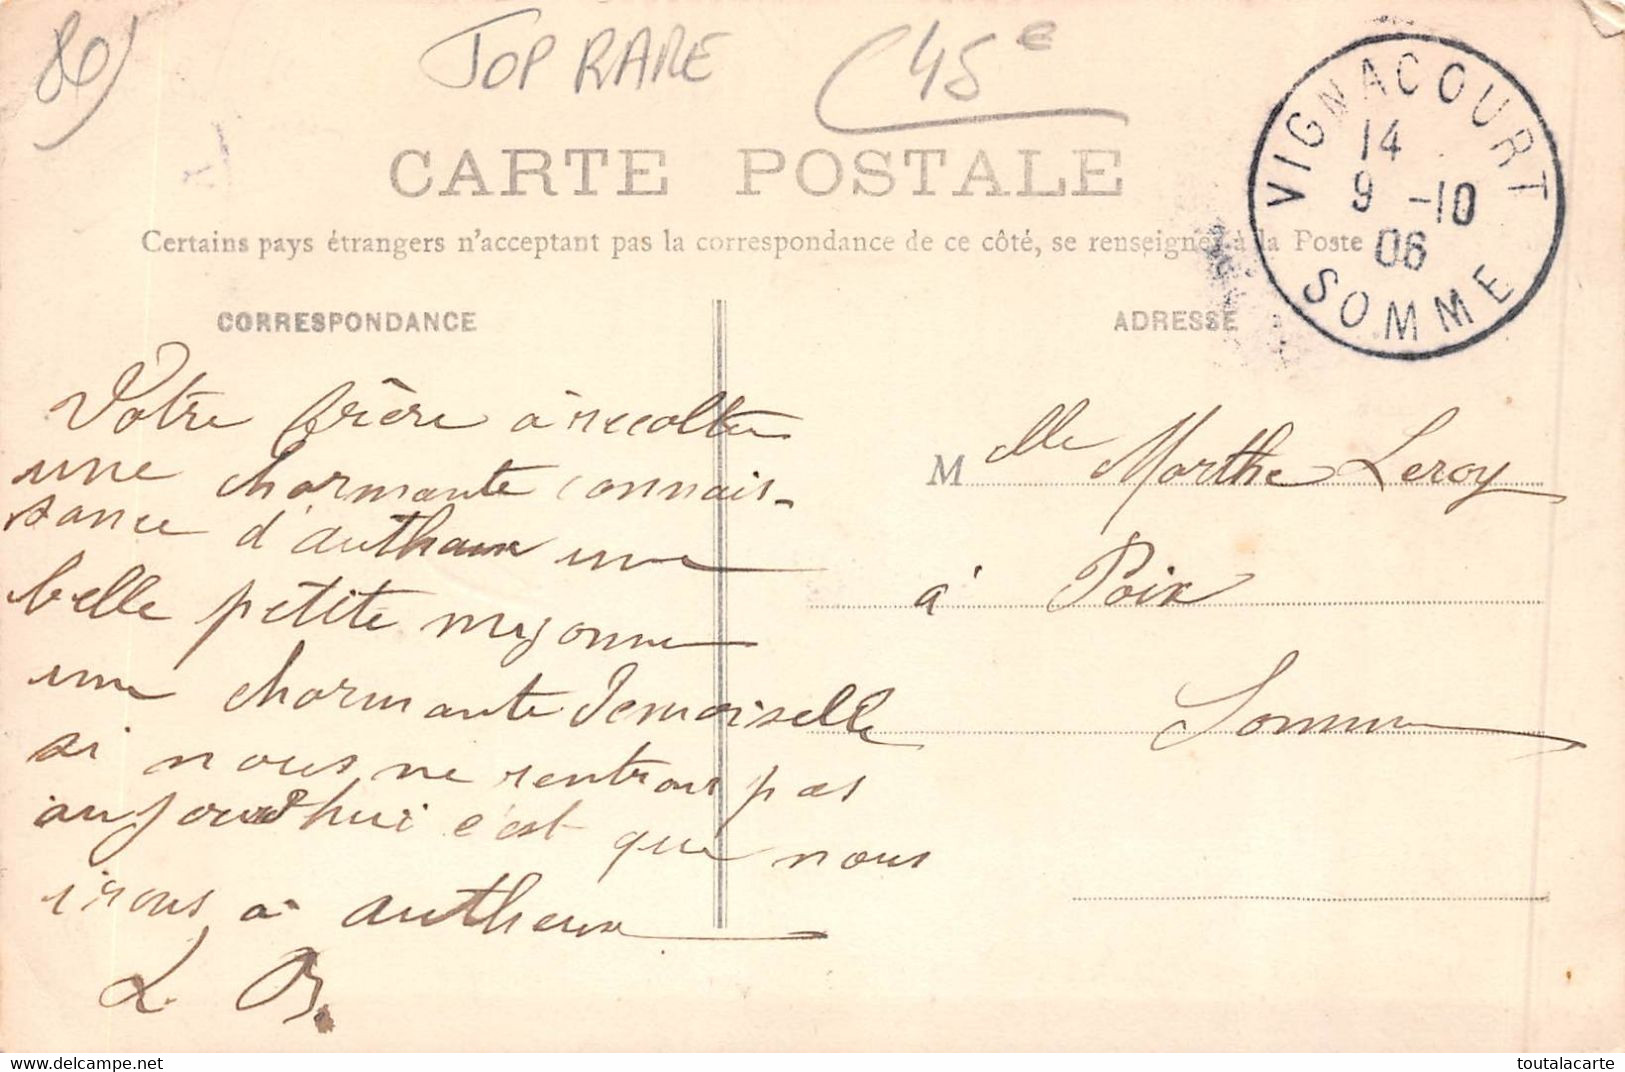 80)
TOP RARE
45 €
CARTE POSTALE
Certains pays étrangers n'acceptent pas la correspondance de ce côté, se renseigner à la Poste
VIGNACOURT
14
9 -10
06
SOMME
CORRESPONDANCE
ADRESSE
Votre frère à recolter
une charmante connais-
sance d'autheux une
belle petite mignonne
une charmante demoiselle
si nous ne rentrons pas
aujourd'hui c'est que nous
irons à autheux
L. B.
Melle Marthe Leroy
à Poix
Somme
www.delcampe.net
toutalacarte